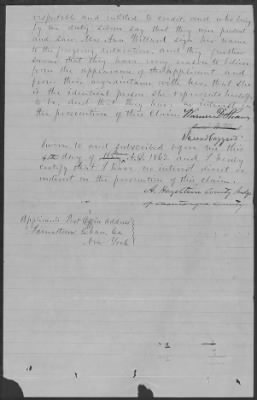 respectable and entitled to credit and who being
by me duly sworn say that they were present
and saw Mrs. Ann Willard sign her name
to the foregoing declaration, and they further
swear that they have every reason to believe
from the appearance of the applicant and
from their acquaintance with her that she
is the identical person she represents herself
to be, and that they have no interest in
the prosecution of this Claim.
Sworn to and subscribed before me, this
day of A.D. 1863. and I hereby
certify that I have no interest direct or
indirect in the prosecution of this claim.
A. Hazeltine County Judge
of Chautauque County
Applicants Post Office address
Jamestown Chau. Co
New York